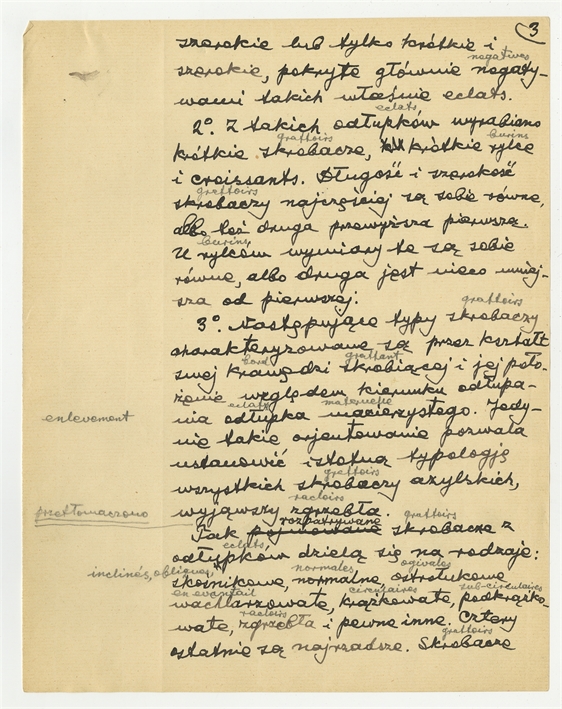 3
szerokie lub tylko krótkie i
negatives
szerokie, pokryte głównie negaty-
wami takich właśnie eclats.
eclats
2°. Z takich odłupków wyrabiano
grattoirs burins
krótkie skrobacze, krótkie rylce
i croissants. Długość i szerokość
grattoirs
skrobaczy najczęściej są sobie równe,
albo też druga przewyższa pierwszą.
burins
U rylców wymiary te są sobie
równe, albo druga jest nieco mniej-
sza od pierwszej.
grattoirs
3°. Następujące typy skrobaczy
charakteryzowane są przez kształt
bord grattant
swej krawędzi skrobiącej i jej poło-
żenie względem kierunku odłupa-
eclats maternelle
enlevement
nia odłupka macierzystego. Jedy-
nie takie orjentowanie pozwala
ustanowić istotną typologję
grattoirs
wszystkich skrobaczy azylskich,
racloirs
przetłomaczono
wyjąwszy zgrzebła.
rozpatrywane grattoirs
Tak pojmowane skrobacze z
eclats
odłupków dzielą się na rodzaje:
inclinés, obliques normales ogivales
skośnikowe, normalne, ostrołukowe
en éventail circulaires sub-circulaires
wachlarzowate, krążkowate, podkrążko-
racloirs
wate, zgrzebła i pewne inne. Cztery
grattoirs
ostatnie są najrzadsze. Skrobacze